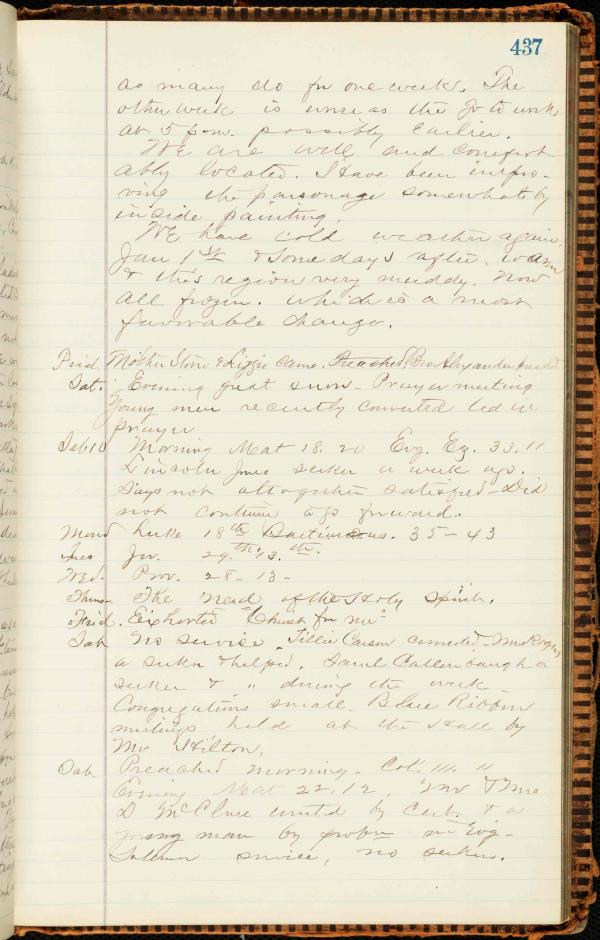 437
as many do for one week. The
other week is worse as the go to work
at 5 P.M. possibly Earlier.
We are well and comfort
ably located. I Have been impro-
ving the parsonage somewhat by
inside painting.
We have cold weather again.
Jan 1st & some days after, warm
& this region very muddy. Now
all frozen. which is a most
favorable change.
Frid. Mother Stone & Lizzie came. Preached Bro Alexander
Sat. Evening great snow - Prayer meeting
Young men recently converted led in
prayer
Sab 10 Morning Mat 18. 20 Evg. Ez. 33.11
Lincoln Jones seeker a week ago.
Says not altogether satisfied - Did
not continue to go forward.
Mond Luke 18th Bartimaeus. 35 - 43
Tues Jer. 29.th 13.th
Wed. Prov. 28 - 13 -
Thurs The Need of the Holy Spirit.
Frid. Exhorted "Christ for me"
Sab No service. Tillie Carson converted -
a seeker & helped. Saml Callenbaugh a
seeker & " during the week -
Congregations small. Blue Ribbon
meetings held at the Hall by
Mr Hilton.
Sab. Preached morning - Col. III. 11
Evening Mat 22.12. Mr & Mrs
D McClure united by Cert. & a
young man by probn in Evg -
Solemn service, no seekers.